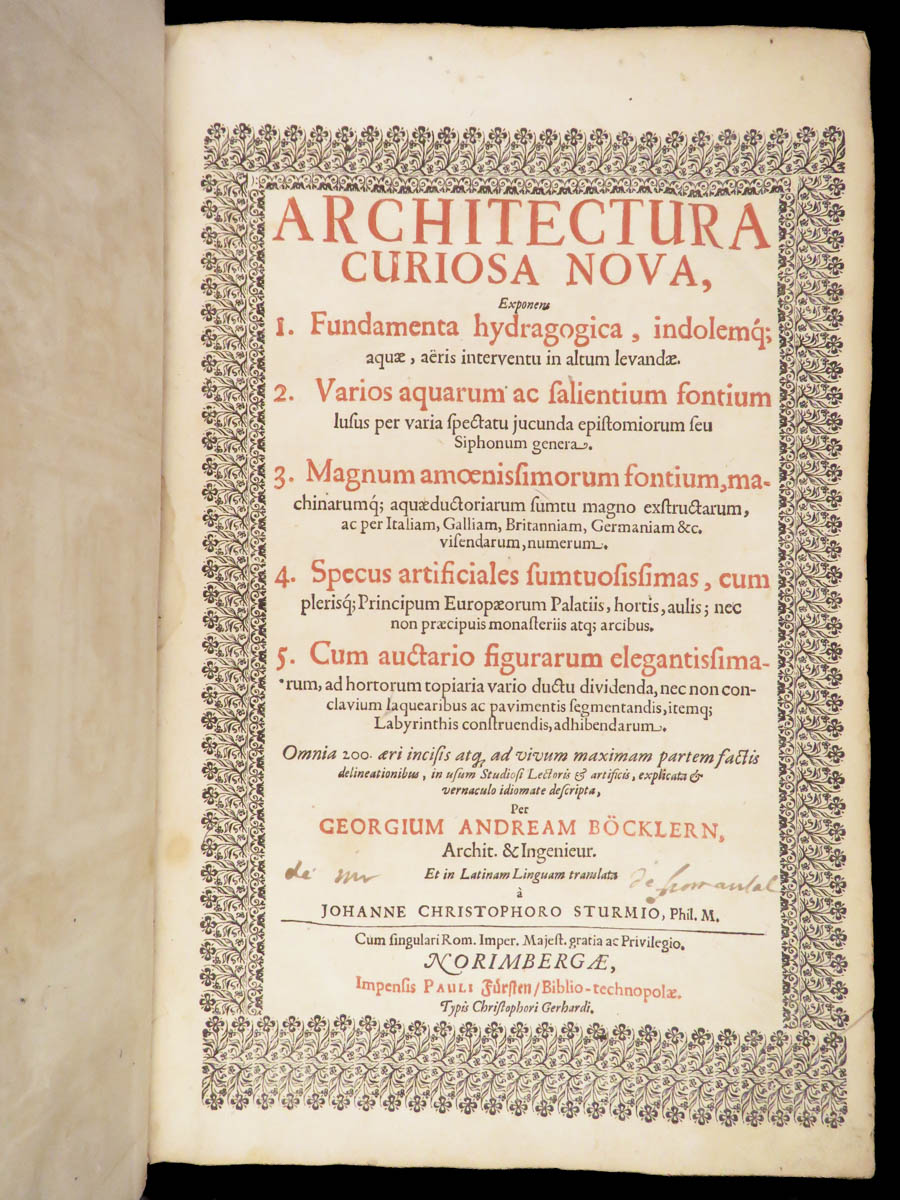 ARCHITECTURA
CURIOSA NOVA,
Exponens
1. Fundamenta hydragogica, indolemq́;
aquæ, aëris interventu in altum levandæ.
2. Varios aquarum ac ſalientium fontium
luſus per varia ſpectatu jucunda epiſtomiorum ſeu
Siphonum genera.
3. Magnum amœniſſimorum fontium, ma-
chinarumq́; aquæductoriarum ſumtu magno exſtructarum,
ac per Italiam, Galliam, Britanniam, Germaniam &c.
viſendarum, numerum.
4. Specus artificiales ſumtuoſiſſimas, cum
plerisq́; Principum Europæorum Palatiis, hortis, aulis; nec
non præcipuis monaſteriis atq; arcibus.
5. Cum auctario figurarum elegantiſſima-
rum, ad hortorum topiaria vario ductu dividenda, nec non con-
clavium laquearibus ac pavimentis ſegmentandis, itemq;
Labyrinthis conſtruendis, adhibendarum.
Omnia 200. æri inciſis atq; ad vivum maximam partem factis
delineationibus, in uſum Studioſi Lectoris & artificis, explicata &
vernaculo idiomate deſcripta,
Per
GEORGIUM ANDREAM BÖCKLERN,
Archit. & Ingenieur.
Et in Latinam Linguam translata
à
JOHANNE CHRISTOPHORO STURMIO, Phil. M.
Cum ſingulari Rom. Imper. Majeſt. gratia ac Privilegio.
NORIMBERGÆ,
Impenſis PAULI Fürſten/Biblio-technopolæ.
Typis Chriſtophori Gerhardi.